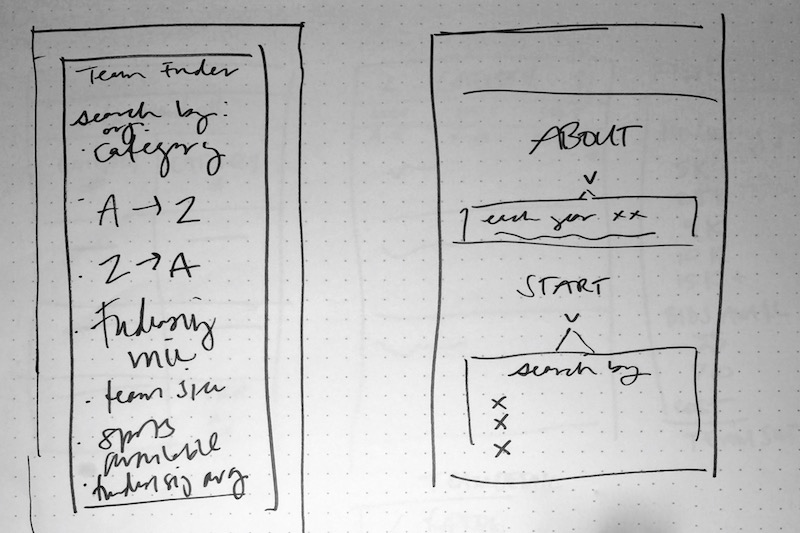 Team Finder
search by:
org.
· category
· A → Z
· Z → A
· Fundraising
min
· team size
· spots
available
· fundraising avg
ABOUT
each year xx
START
search by
x
x
x